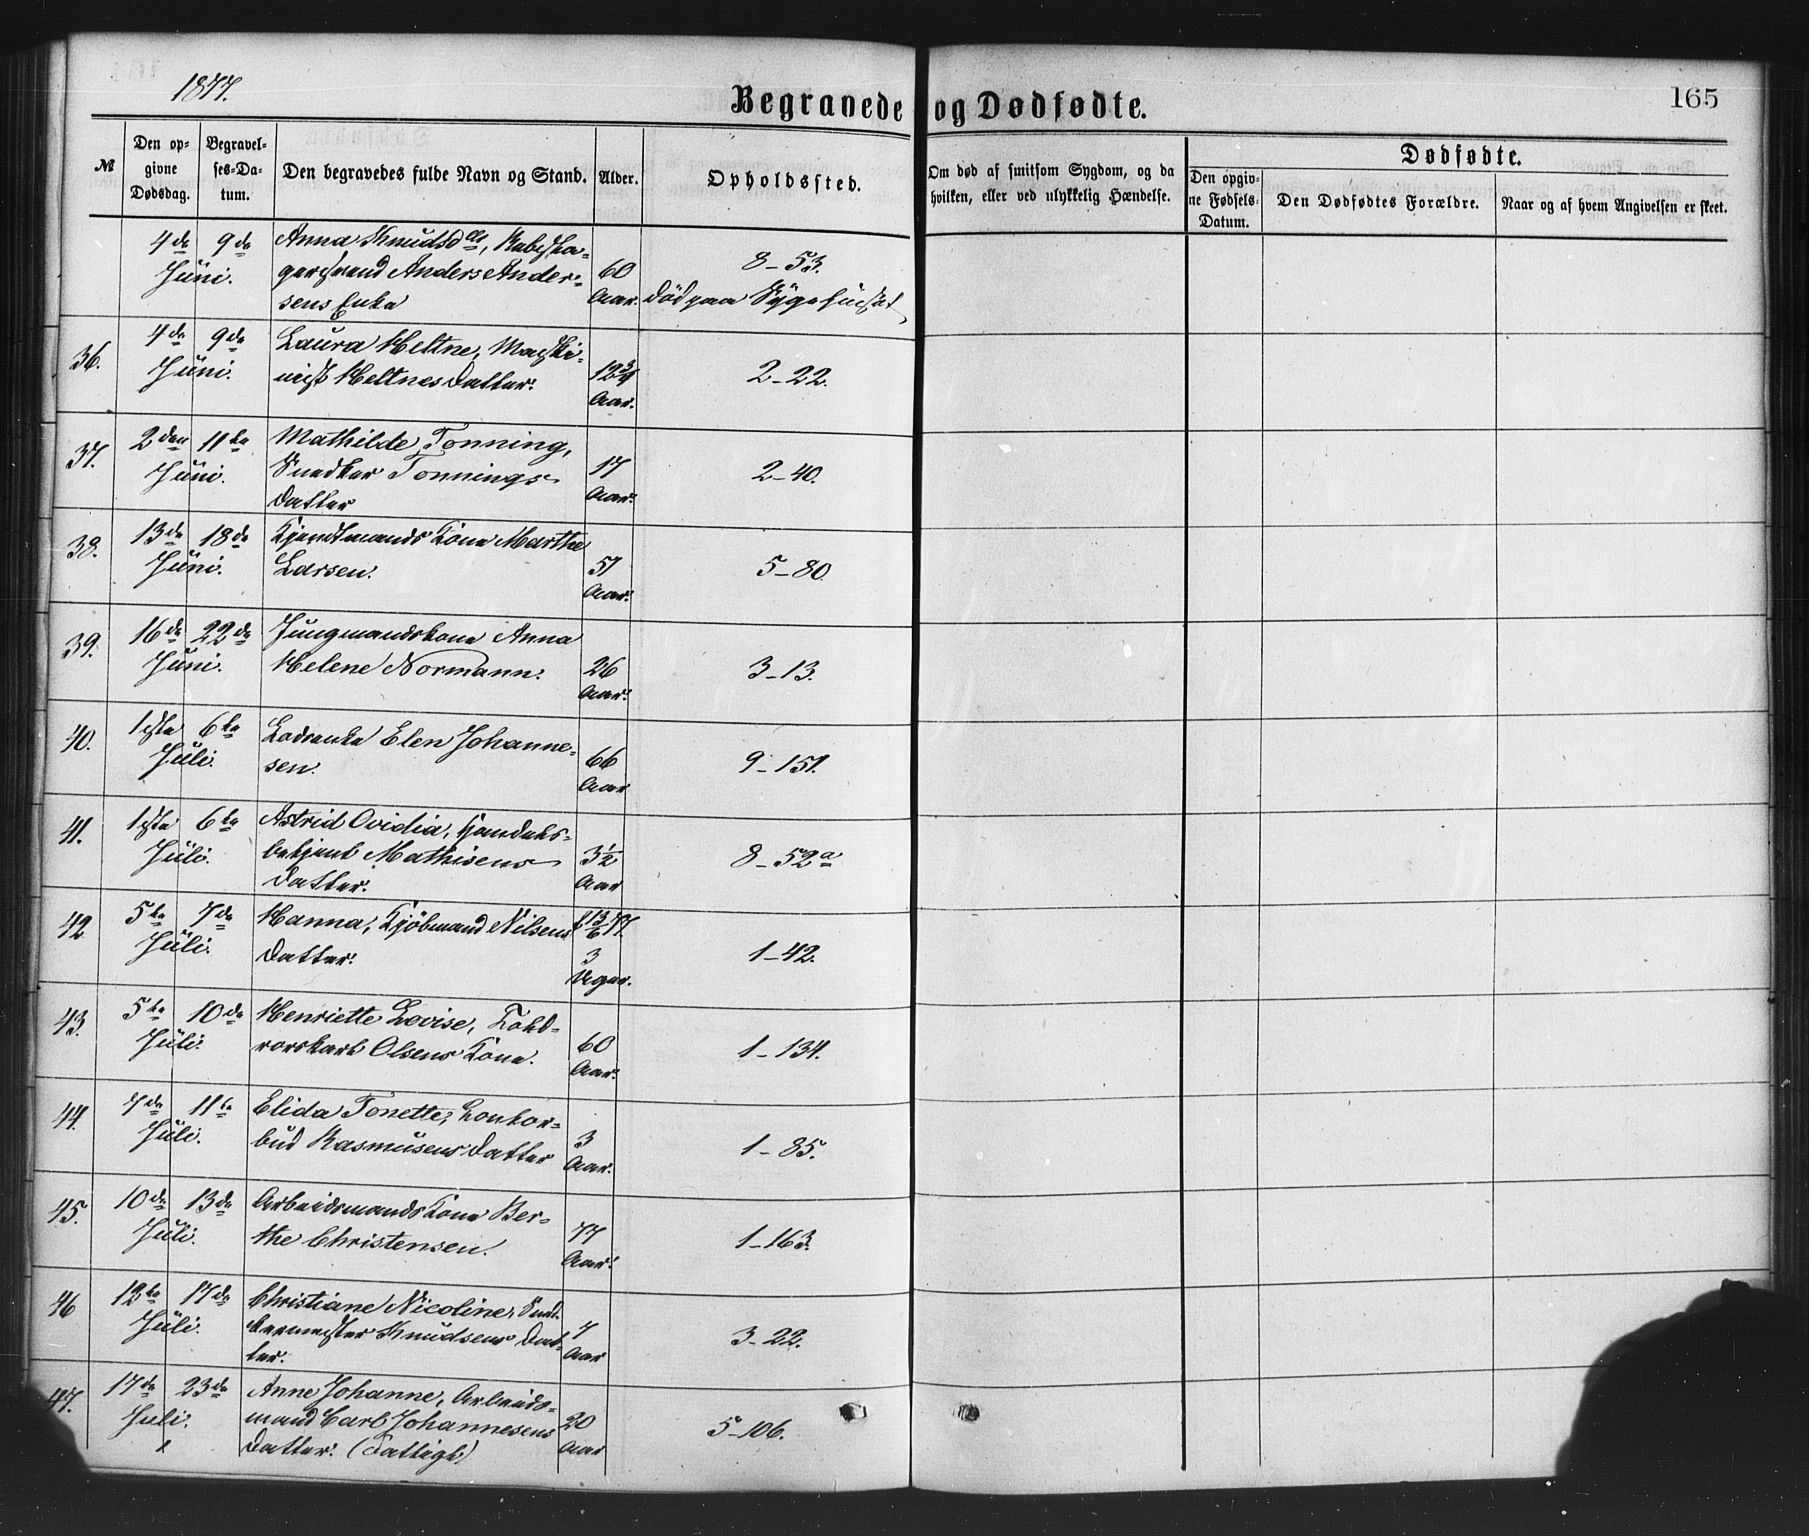 1877.
Begravede og Dødfødte.
165
№
Den op-
givne
Dødsdag.
Begravel-
ses-Da-
tum.
Den begravedes fulde Navn og Stand.
Alder.
Opholdssted.
Om død af smitsom Sygdom, og da
hvilken, eller ved ulykkelig Hændelse.
Dødfødte.
Den opgiv-
ne Fødsels-
Datum.
Den Dødfødtes Forældre.
Naar og af hvem Angivelsen er skeet.
4de Juni. 9de
Anna Knudsd
Anders Ander-
sens Enke
60 Aar.
8-53.
død paa Sygehuset
36. 4de Juni. 9de
Laura Heltne, Maski-
nist Heltnes Datter.
12 3/4 Aar.
2-22.
37. 2den Juni. 11te
Mathilde Tonning,
Snedker Tonnings
Datter
17 Aar.
2-40.
38. 13de Juni. 18de
Kone Marthe
Larsen.
57 Aar.
5-80.
39. 16de Juni. 22de
Jungmandskone Anna
Helene Normann.
26 Aar.
3-13.
40. 1ste Juli. 6te
Elen Johanne-
sen.
66 Aar
9-151.
41. 1ste Juli. 6te
Astrid Ovidia, Handels-
betjent Mathisens
Datter.
3 1/2 Aar
8-52a
42. 5te Juli. 7de
Hanna, Kjöbmand Nilsens
Datter.
f 13/6 77.
3 Uger.
1-42.
43. 5te Juli. 10de
Henriette Lovise, Told-
rorskarl Olsens Kone.
60 Aar.
1-134.
44. 7de Juli. 11te
Elida Tonette, Contor-
bud Rasmusens Datter
3 Aar.
1-85.
45. 10de Juli. 13de
Arbeidsmands Kone Ber-
the Christensen.
77 Aar.
1-163.
46 12te Juli. 17de
Christiane Nicoline, Sned-
kermester Knudsens Dat-
ter.
7 Aar
3-22.
47. 17de Juli. 23de
Anne Johanne, Arbeids-
mand Carl Johannesens
Datter. (Fattigl)
20 Aar
5-106.